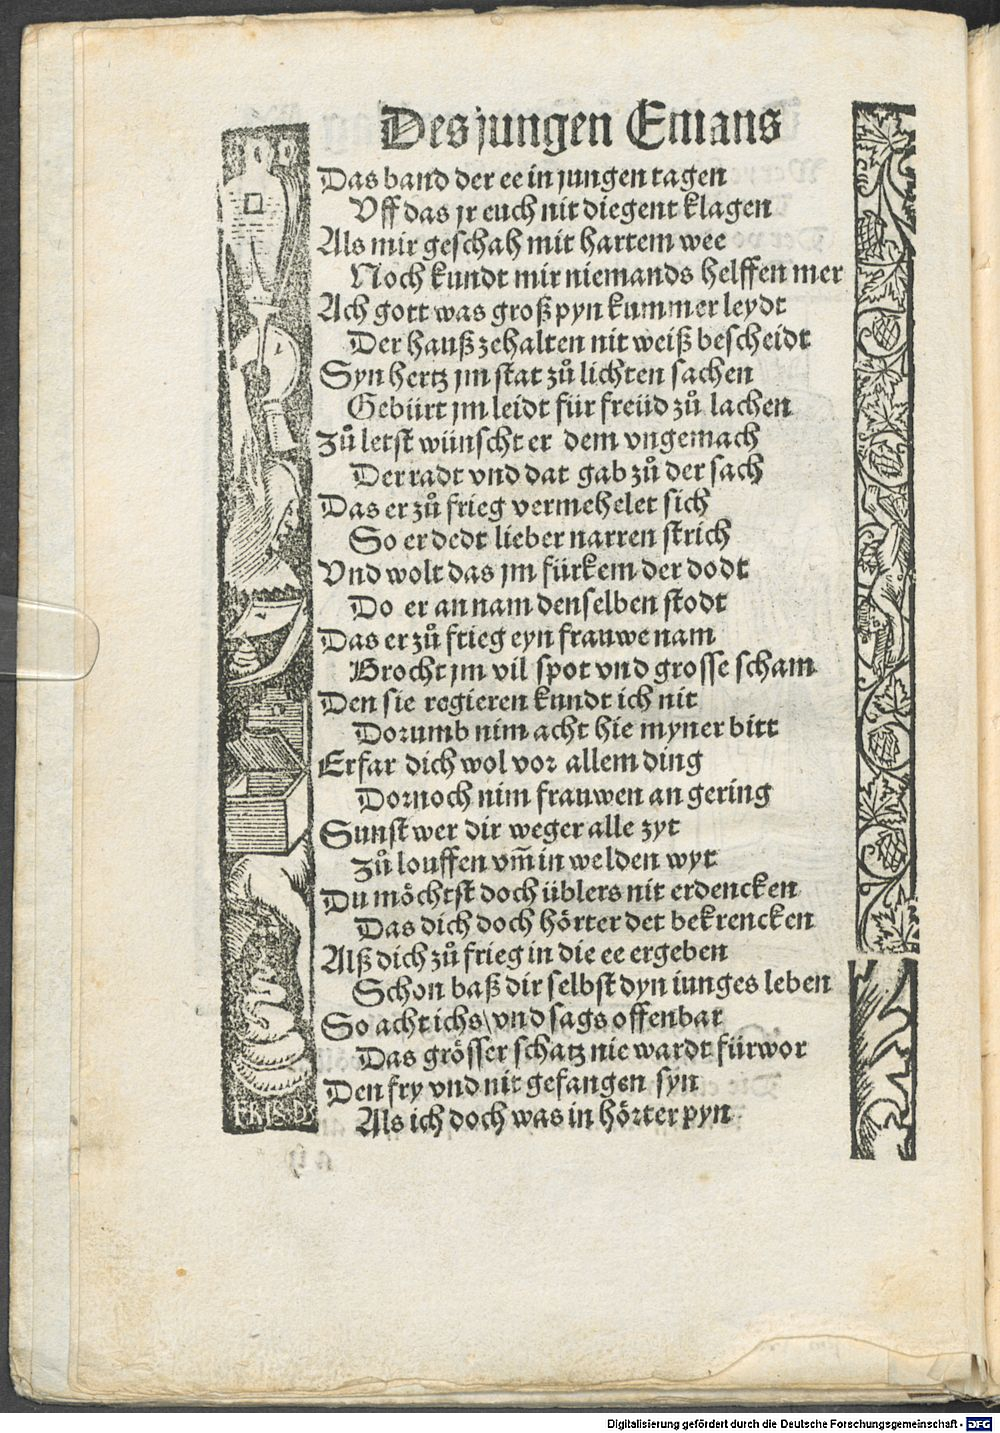 Des jungen Emans
Das band der ee in jungen tagen
Vff das jr euch nit diegent klagen
Als mir geschah mit hartem wee
Noch kundt mir niemands helffen mer
Ach gott was groß pyn kummer leydt
Der hauß zehalten nit weiß bescheidt
Syn hertz jm stat zů lichten sachen
Gebürt jm leidt für freüd zů lachen
Zů letst wünscht er dem vngemach
Der radt vnd dat gab zů der sach
Das er zů frieg vermehelet sich
So er dedt lieber narren strich
Vnd wolt das jm fürkem der dodt
Do er an nam denselben stodt
Das er zů frieg eyn frauwe nam
Brocht jm vil spot vnd grosse scham
Den sie regieren kundt ich nit
Dorumb nim acht hie myner bitt
Erfar dich wol vor allem ding
Dornoch nim frauwen an gering
Sunst wer dir weger alle zyt
Zů louffen vm̄ in welden wyt
Du möchtst doch üblers nit erdencken
Das dich doch hörter det bekrencken
Alß dich zů frieg in die ee ergeben
Schon baß dir selbst dyn iunges leben
So acht ichs \ vnd sags offenbar
Das grösser schatz nie wardt fürwor
Den fry vnd nit gefangen syn
Als ich doch was in hörter pyn
Digitalisierung gefördert durch die Deutsche Forschungsgemeinschaft - DFG